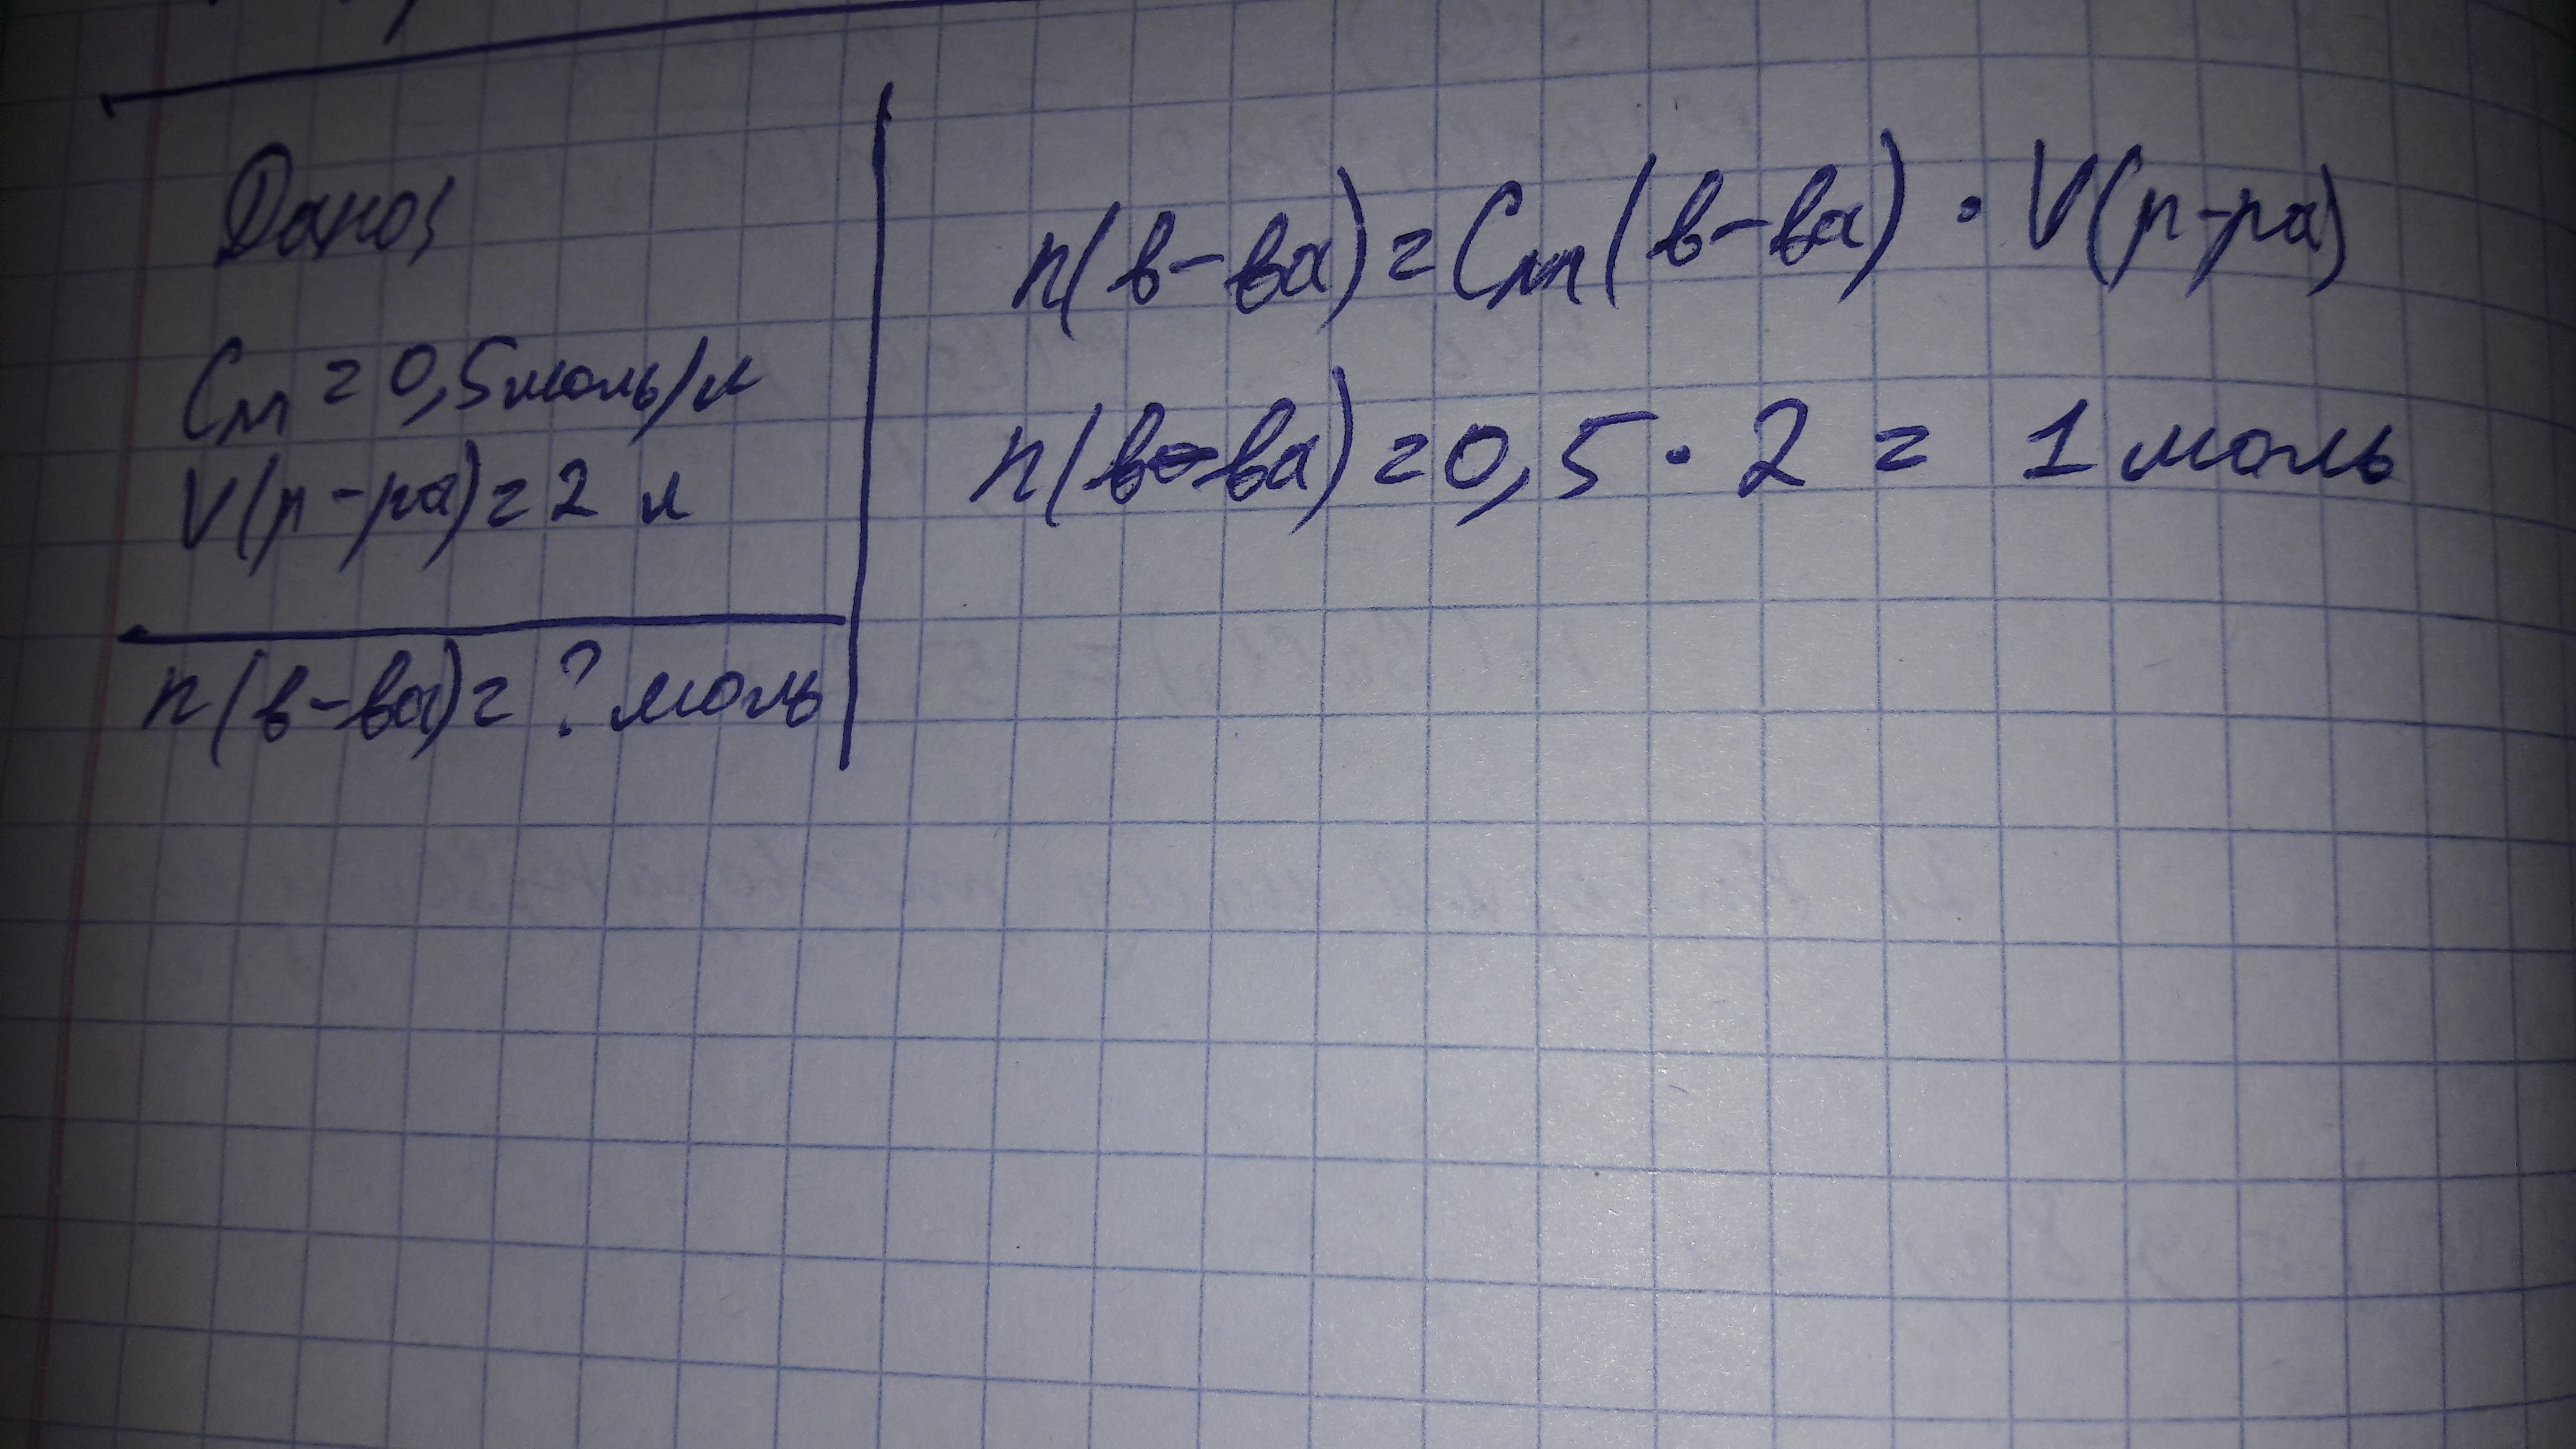 Дано:
См = 0,5 моль/л
V(р-ра) = 2 л
n(в-ва) = ? моль
n(в-ва) = См(в-ва) • V(р-ра)
n(в-ва) = 0,5 • 2 = 1 моль